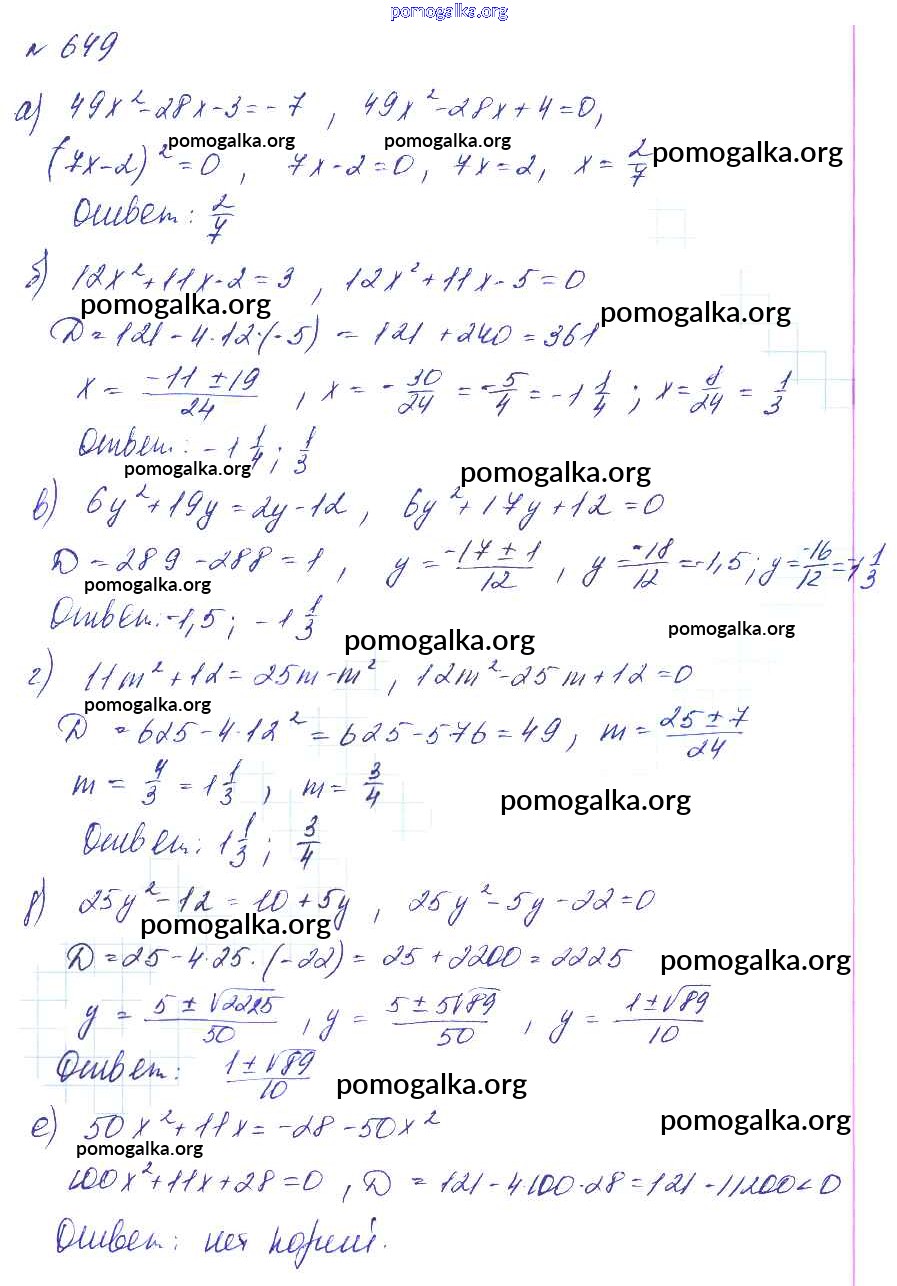 pomogalka.org
№ 649
а) 49x² - 28x - 3 = - 7 , 49x² - 28x + 4 = 0,
pomogalka.org pomogalka.org
(7x - 2)² = 0 , 7x - 2 = 0 , 7x = 2, x = 2/7 pomogalka.org
Ответ: 2/7
б) 12x² + 11x - 2 = 3 , 12x² + 11x - 5 = 0
pomogalka.org pomogalka.org
D = 121 - 4·12·(-5) = 121 + 240 = 361
x = (-11 ± 19)/24 , x = - 30/24 = - 5/4 = - 1 1/4 ; x = 8/24 = 1/3
Ответ: - 1 1/4 ; 1/3
pomogalka.org pomogalka.org
в) 6y² + 19y = 2y - 12 , 6y² + 17y + 12 = 0
D = 289 - 288 = 1 , y = (-17 ± 1)/12 , y = -18/12 = -1,5 ; y = -16/12 = -1 1/3
pomogalka.org
Ответ: -1,5 ; - 1 1/3
pomogalka.org pomogalka.org
г) 11m² + 12 = 25m - m² , 12m² - 25m + 12 = 0
pomogalka.org
D = 625 - 4·12² = 625 - 576 = 49 , m = (25 ± 7)/24
m = 4/3 = 1 1/3 , m = 3/4
pomogalka.org
Ответ: 1 1/3 ; 3/4
д) 25y² - 12 = 10 + 5y , 25y² - 5y - 22 = 0
pomogalka.org
D = 25 - 4·25·(-22) = 25 + 2200 = 2225 pomogalka.org
y = (5 ± √2225)/50 , y = (5 ± 5√89)/50 , y = (1 ± √89)/10
Ответ: (1 ± √89)/10
pomogalka.org
е) 50x² + 11x = -28 - 50x² pomogalka.org
pomogalka.org
100x² + 11x + 28 = 0 , D = 121 - 4·100·28 = 121 - 11200 < 0
Ответ: нет корней.